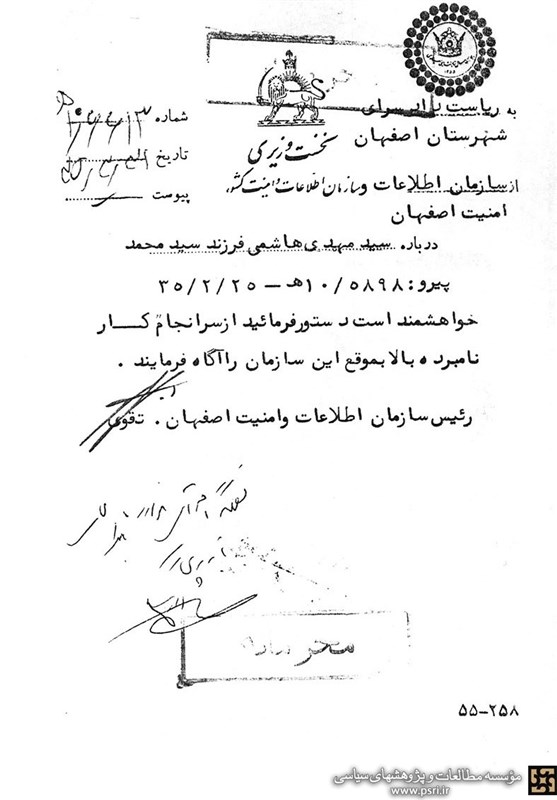 به ریاست دادسرای
شهرستان اصفهان
نخست وزیری
سازمان اطلاعات و امنیت کشور
شماره
تاریخ
پیوست
از سازمان اطلاعات و
امنیت اصفهان
درباره سید مهدی هاشمی فرزند سید محمد
پیرو: ۱۰/۵۸۹۸هـ - ۳۵/۲/۲۵
خواهشمند است دستور فرمائید از سرانجام کار
نامبرده بالا بموقع این سازمان را آگاه فرمایند .
رئیس سازمان اطلاعات و امنیت اصفهان . تقوی
۵۵-۲۵۸
مؤسسه مطالعات و پژوهشهای سیاسی
www.psri.ir